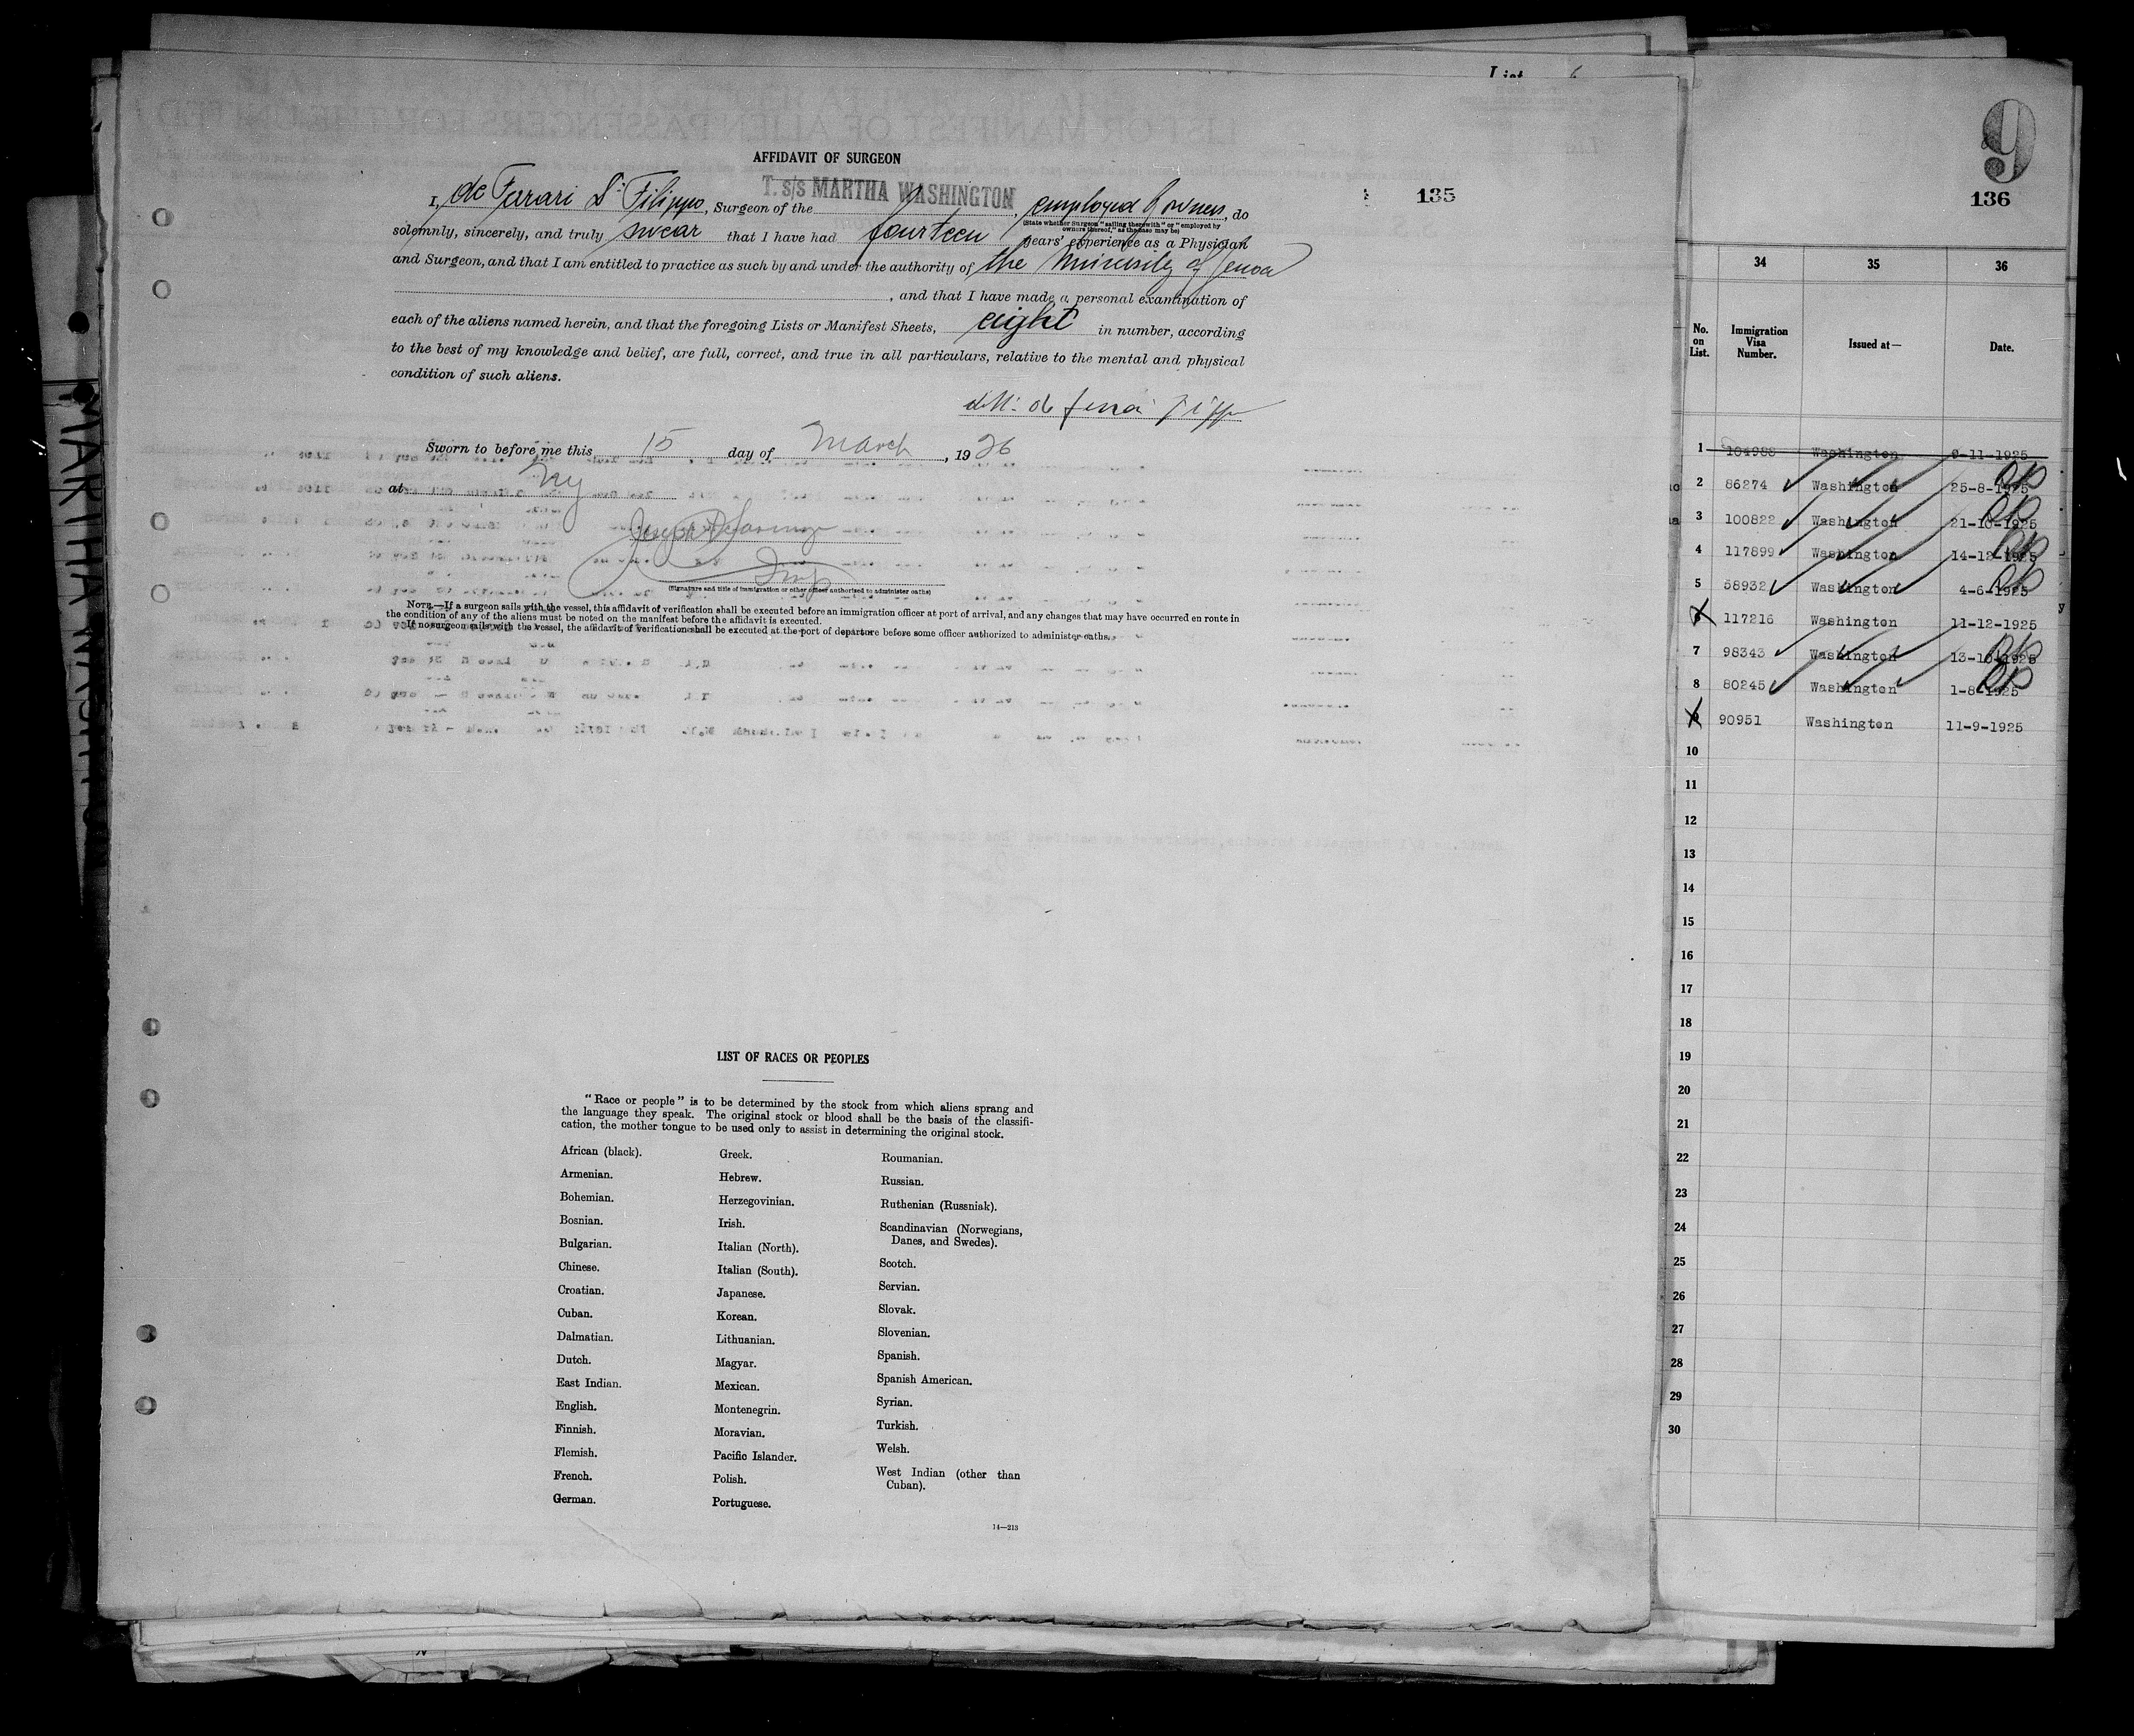 List 6
AFFIDAVIT OF SURGEON
T. s/s MARTHA WASHINGTON
I, de Ferrari Dr Filippo, Surgeon of the , employed by owners, do
(State whether Surgeon "sailing therewith" or "employed by
owners thereof," as the case may be)
solemnly, sincerely, and truly swear that I have had fourteen years' experience as a Physician
and Surgeon, and that I am entitled to practice as such by and under the authority of the University of Genoa
, and that I have made a personal examination of
each of the aliens named herein, and that the foregoing Lists or Manifest Sheets, eight in number, according
to the best of my knowledge and belief, are full, correct, and true in all particulars, relative to the mental and physical
condition of such aliens.
Sworn to before me this 15 day of March, 1926
at NY
Insp
(Signature and title of immigration or other officer authorized to administer oaths)
NOTE.—If a surgeon sails with the vessel, this affidavit of verification shall be executed before an immigration officer at port of arrival, and any changes that may have occurred en route in
the condition of any of the aliens must be noted on the manifest before the affidavit is executed.
If no surgeon sails with the vessel, the affidavit of verification shall be executed at the port of departure before some officer authorized to administer oaths.
LIST OF RACES OR PEOPLES
"Race or people" is to be determined by the stock from which aliens sprang and
the language they speak. The original stock or blood shall be the basis of the classifi-
cation, the mother tongue to be used only to assist in determining the original stock.
African (black).
Armenian.
Bohemian.
Bosnian.
Bulgarian.
Chinese.
Croatian.
Cuban.
Dalmatian.
Dutch.
East Indian.
English.
Finnish.
Flemish.
French.
German.
Greek.
Hebrew.
Herzegovinian.
Irish.
Italian (North).
Italian (South).
Japanese.
Korean.
Lithuanian.
Magyar.
Mexican.
Montenegrin.
Moravian.
Pacific Islander.
Polish.
Portuguese.
Roumanian.
Russian.
Ruthenian (Russniak).
Scandinavian (Norwegians,
Danes, and Swedes).
Scotch.
Servian.
Slovak.
Slovenian.
Spanish.
Spanish American.
Syrian.
Turkish.
Welsh.
West Indian (other than
Cuban).
14—213
135
9
136
34 35 36
No. on List. Immigration Visa Number. Issued at— Date.
1 104988 Washington 9-11-1925
2 86274 Washington 25-8-1925
3 100822 Washington 21-10-1925
4 117899 Washington 14-12-1925
5 58932 Washington 4-6-1925
6 117216 Washington 11-12-1925
7 98343 Washington 13-10-1925
8 80245 Washington 1-8-1925
9 90951 Washington 11-9-1925
10
11
12
13
14
15
16
17
18
19
20
21
22
23
24
25
26
27
28
29
30
MARTHA WASHINGTON